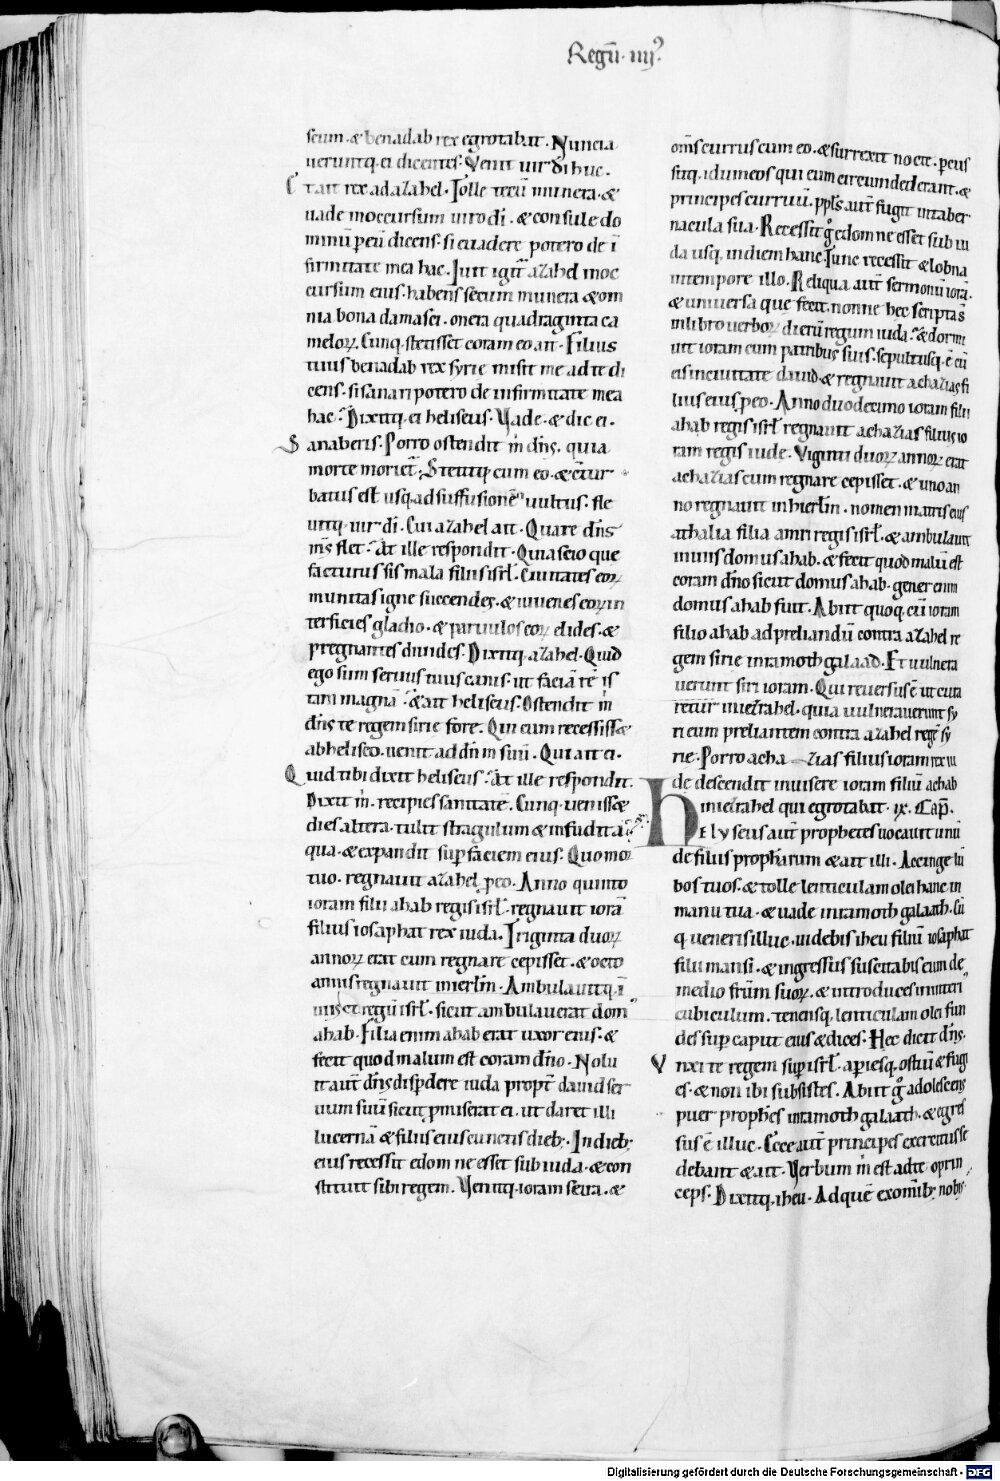 Regũ· iiij⁹·
scum· & benadab rex egrotabat· Nuncia
ueruntq; ei dicentes· Venit uir d̃i huc·
Et ait rex ad azahel· Tolle tecũ munera· &
uade in occursum uiro d̃i· & consule do
minũ p eũ dicens· si euadere potero de ĩ
firmitate mea hac· Iuit igit̃ azahel in oc
cursum eius· habens secum munera & om
nia bona damasci· onera quadraginta ca
meloꝝ· Cunq; stetisset coram eo ait· Filius
tuus benadab rex syrie misit me ad te di
cens· si sanari potero de infirmitate mea
hac· Dixitq; ei heliseus· Vade· & dic ei·
Sanaberis· Porro ostendit m̃ d̃ns· quia
morte moriet̃· Stetitq; cum eo· & ctur
batus est usq; ad suffusionẽ uultus· fle
uitq; uir d̃i· Cui azahel ait· Quare d̃ns
m̃s flet· At ille respondit· Quia scio que
facturus sis mala filiis isrł· Ciuitates eoꝝ
munitas igne succendes· & iuuenes eoꝝ in
terficies gladio· & paruulos eoꝝ elides· &
pregnantes diuides· Dixitq; azahel· Quid
ego sum seruus tuus canis· ut faciã rẽ is
tam magnã· & ait heliseus· Ostendit m̃
d̃ns te regem sirie fore· Qui cum recessiss&
ab heliseo· uenit ad dñm suũ· Qui ait ei·
Quid tibi dixit heliseus· At ille respondit·
Dixit m̃· recipies sanitatẽ· Cunq;ueniss&
dies altera· tulit stragulum & infudit a
qua· & expandit sup faciem eius· Quo mor
tuo· regnauit azahel p eo· Anno quinto
ioram filii ahab regis isrł· regnauit iorã
filius iosaphat rex iuda· Triginta duoꝝ
annoꝝ erat cum regnare cepisset· & octo
annis regnauit in ierłm· Ambulauitq; ĩ
uiis regũ isrł· sicut ambulauerat dom⁹
ahab· Filia enim ahab erat uxor eius· &
fecit quod malum est coram dño· Nolu
it aut̃ d̃ns disp̱dere iuda propt̃ dauid ser
uum suũ sicut p̱miserat ei· ut daret illi
lucernã & filiis eius cunctis dieb;· In dieb;
eius recessit edom ne esset sub iuda· & con
stituit sibi regem· Venitq; ioram seira· &
om̃s currus cum eo· & surrexit nocte· p̱cus
sitq; idumeos qui eum circumdederant· &
principes curruũ· pp̃ls aut̃ fugit in taber
nacula sua· Recessit g̊ edom ne esset sub iu
da usq; in diem hanc· Tunc recessit & lobna
in tempore illo· Reliqua aut̃ sermonũ iorã·
& uniuersa que fecit· nonne hec scripta s̃
in libro uerboꝝ dierũ regum iuda· & dormi
uit ioram cum patribus suis· sepultusq; ẽ cũ
eis in ciuitate dauid· & regnauit achazias fi
lius eius p̱ eo· Anno duodecimo ioram filii
ahab regis isrł regnauit achazias filius io
ram regis iude· Viginti duoꝝ annoꝝ erat
achazias cum regnare cepisset· & uno an
no regnauit in hierłm· nomen matris eius
athalia filia amri regis isrł· & ambulauit
in uiis domus ahab· & fecit quod malũ est
coram dño sicut domus ahab· gener enim
domus ahab fuit· Abiit quoq; cũ ioram
filio ahab ad preliandũ contra azahel re
gem sirie in ramoth galaad· Et uulnera
uerunt siri ioram· Qui reuersus ẽ ut cura
retur in iezrahel· quia uulnerauerunt sy
ri eum preliantem contra azahel regẽ sy
rie· Porro acha zias filius ioram rex iu
de descendit inuisere ioram filiũ achab
in iezrahel qui egrotabat· ix· Cap̃·
Helyseus aut̃ prophetes uocauit unũ
de filiis propħarum & ait illi· Accinge lũ
bos tuos· & tolle lenticulam olei hanc in
manu tua· & uade in ramoth galaath· Cũ
q; ueneris illuc· uidebis iheu filiũ iosaphat
filii mansi· & ingressus suscitabis eum de
medio frm̃ suoꝝ· & introduces in interi⁹
cubiculum· tenensq; lenticulam olei fun
des sup caput eius & dices· Hec dicit d̃ns·
Vnxi te regem sup isrł· apiesq; ostiũ & fugi
es· & non ibi subsistes· Abiit g̊ adolescens
puer propħes in ramoth galaath· & egres
sus ẽ illuc· Ecce aut̃ principes exercitus se
debant & ait· Verbum m̃ est ad te o prin
ceps· Dixitq; iheu· Ad quẽ ex omĩb; nobis·
Digitalisierung gefördert durch die Deutsche Forschungsgemeinschaft - DFG